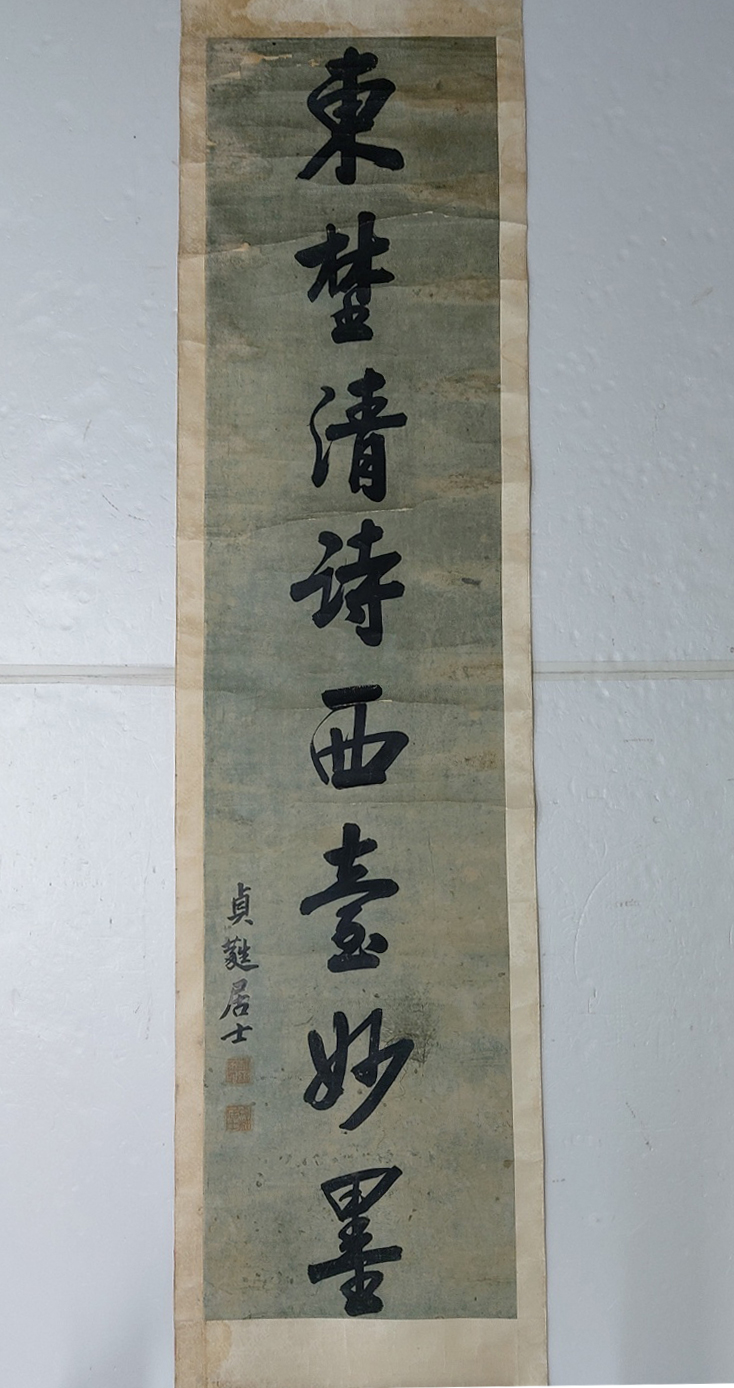 東埜清詩西臺妙墨
貞蕤居士